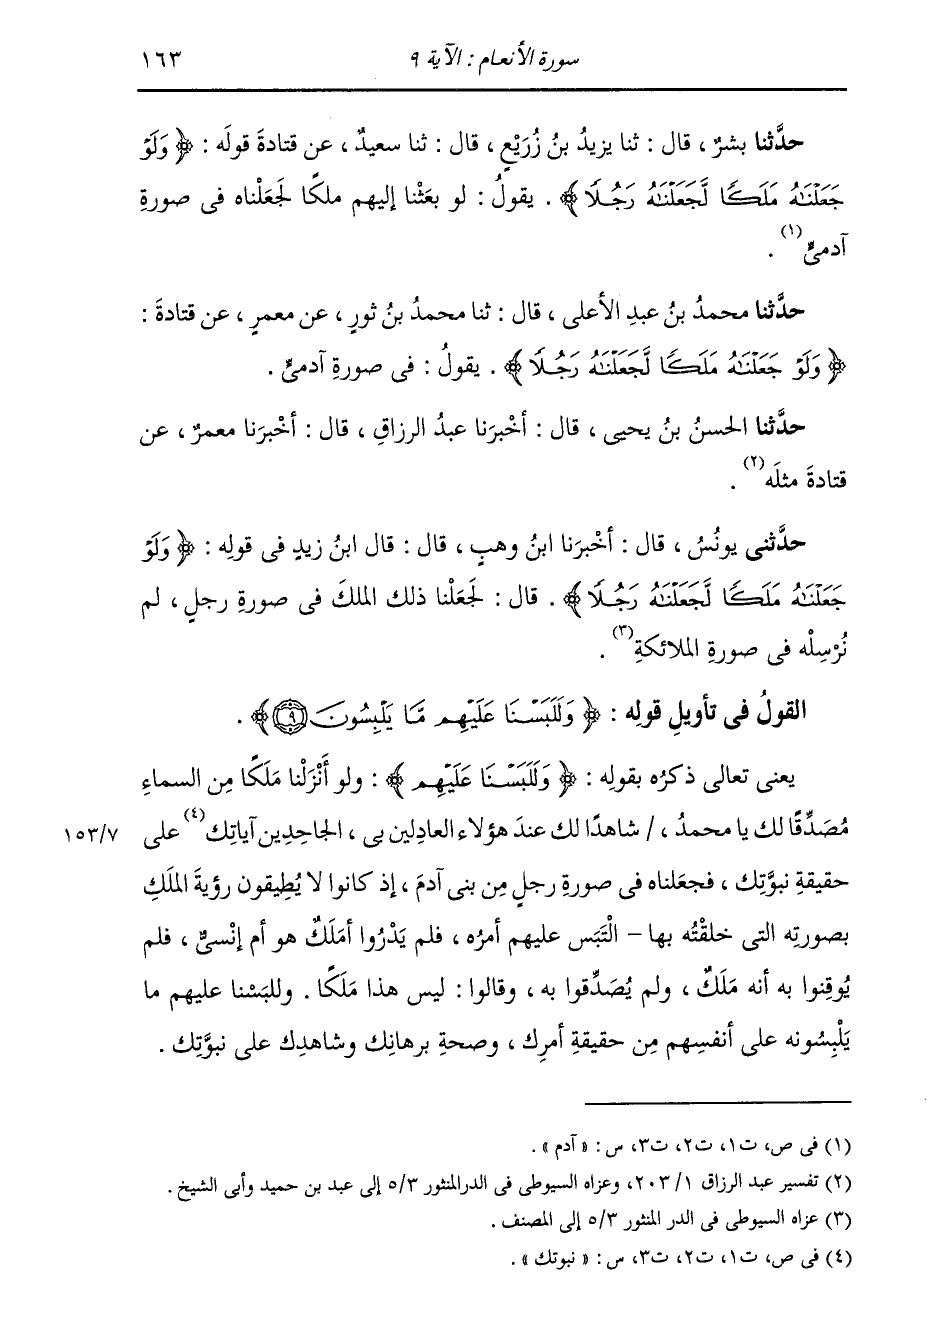 سورة الأنعام : الآية ٩
١٦٣
حدَّثنا بشرٌ ، قال : ثنا يزيدُ بنُ زُرَيْعٍ ، قال : ثنا سعيدٌ ، عن قتادةَ قولَه : ﴿ وَلَوْ
جَعَلْنَٰهُ مَلَكًا لَّجَعَلْنَٰهُ رَجُلًا ﴾ . يقولُ : لو بعَثْنا إليهم ملكًا لجَعَلْناه فى صورةِ
آدمىٍّ(١) .
حدَّثنا محمدُ بنُ عبدِ الأعلى ، قال : ثنا محمدُ بنُ ثورٍ ، عن معمرٍ ، عن قتادةَ :
﴿ وَلَوْ جَعَلْنَٰهُ مَلَكًا لَّجَعَلْنَٰهُ رَجُلًا ﴾ . يقولُ : فى صورةِ آدمىٍّ .
حدَّثنا الحسنُ بنُ يحيى ، قال : أخْبرَنا عبدُ الرزاقِ ، قال : أخْبرَنا معمرٌ ، عن
قتادةَ مثلَه(٢) .
حدَّثنى يونُسُ ، قال : أخْبرَنا ابنُ وهبٍ ، قال : قال ابنُ زيدٍ فى قولِه : ﴿ وَلَوْ
جَعَلْنَٰهُ مَلَكًا لَّجَعَلْنَٰهُ رَجُلًا ﴾ . قال : لجَعَلْنا ذلك الملكَ فى صورةِ رجلٍ ، لم
نُرْسِلْه فى صورةِ الملائكةِ(٣) .
القولُ فى تأويلِ قولِه : ﴿ وَلَلَبَسْنَا عَلَيْهِم مَّا يَلْبِسُونَ ٩ ﴾ .
يعنى تعالى ذكرُه بقولِه : ﴿ وَلَلَبَسْنَا عَلَيْهِم ﴾ : ولو أَنْزَلْنا مَلَكًا مِن السماءِ
مُصَدِّقًا لك يا محمدُ ، / شاهدًا لك عندَ هؤلاء العادِلين بى ، الجاحِدِين آياتِك(٤) على
١٥٣/٧
حقيقةِ نبوَّتِك ، فجعَلناه فى صورةِ رجلٍ مِن بنى آدمَ ، إذ كانوا لا يُطِيقون رؤيةَ الملَكِ
بصورتِه التى خلقْتُه بها - الْتَبَس عليهم أمرُه ، فلم يَدْرُوا أمَلَكٌ هو أم إنْسىٌّ ، فلم
يُوقِنوا به أنه مَلَكٌ ، ولم يُصَدِّقوا به ، وقالوا : ليس هذا مَلَكًا . وللبَسْنا عليهم ما
يَلْبِسُونه على أنفسِهم مِن حقيقةِ أمرِك ، وصحةِ برهانِك وشاهدِك على نبوَّتِك .
(١) فى ص، ت١، ت٢، ت٣، س : « آدم » .
(٢) تفسير عبد الرزاق ١ /٢٠٣، وعزاه السيوطى فى الدرالمنثور ٥/٣ إلى عبد بن حميد وأبى الشيخ .
(٣) عزاه السيوطى فى الدر المنثور ٥/٣ إلى المصنف .
(٤) فى ص، ت١، ت٢، ت٣، س : « نبوتك » .